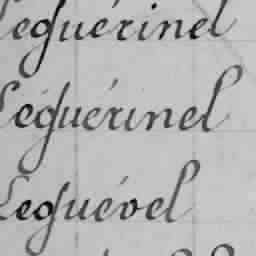 Leguérinel
Léguérinel
Leguével